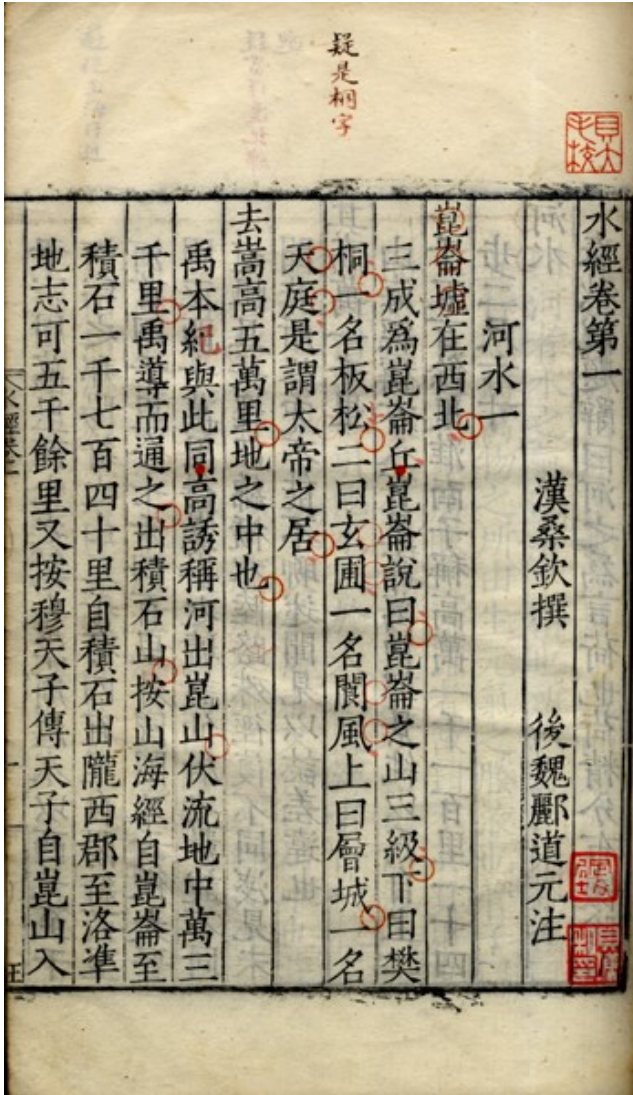 疑是桐字
水經卷第一
漢桑欽撰 後魏酈道元注
河水一
崑崙墟在西北
三成爲崑崙丘崑崙說曰崑崙之山三級下曰樊
桐一名板松二曰玄圃一名閬風上曰層城一名
天庭是謂太帝之居
去嵩高五萬里地之中也
禹本紀與此同高誘稱河出崑山伏流地中萬三
千里禹導而通之出積石山按山海經自崑崙至
積石一千七百四十里自積石出隴西郡至洛凖
地志可五千餘里又按穆天子傳天子自崑山入